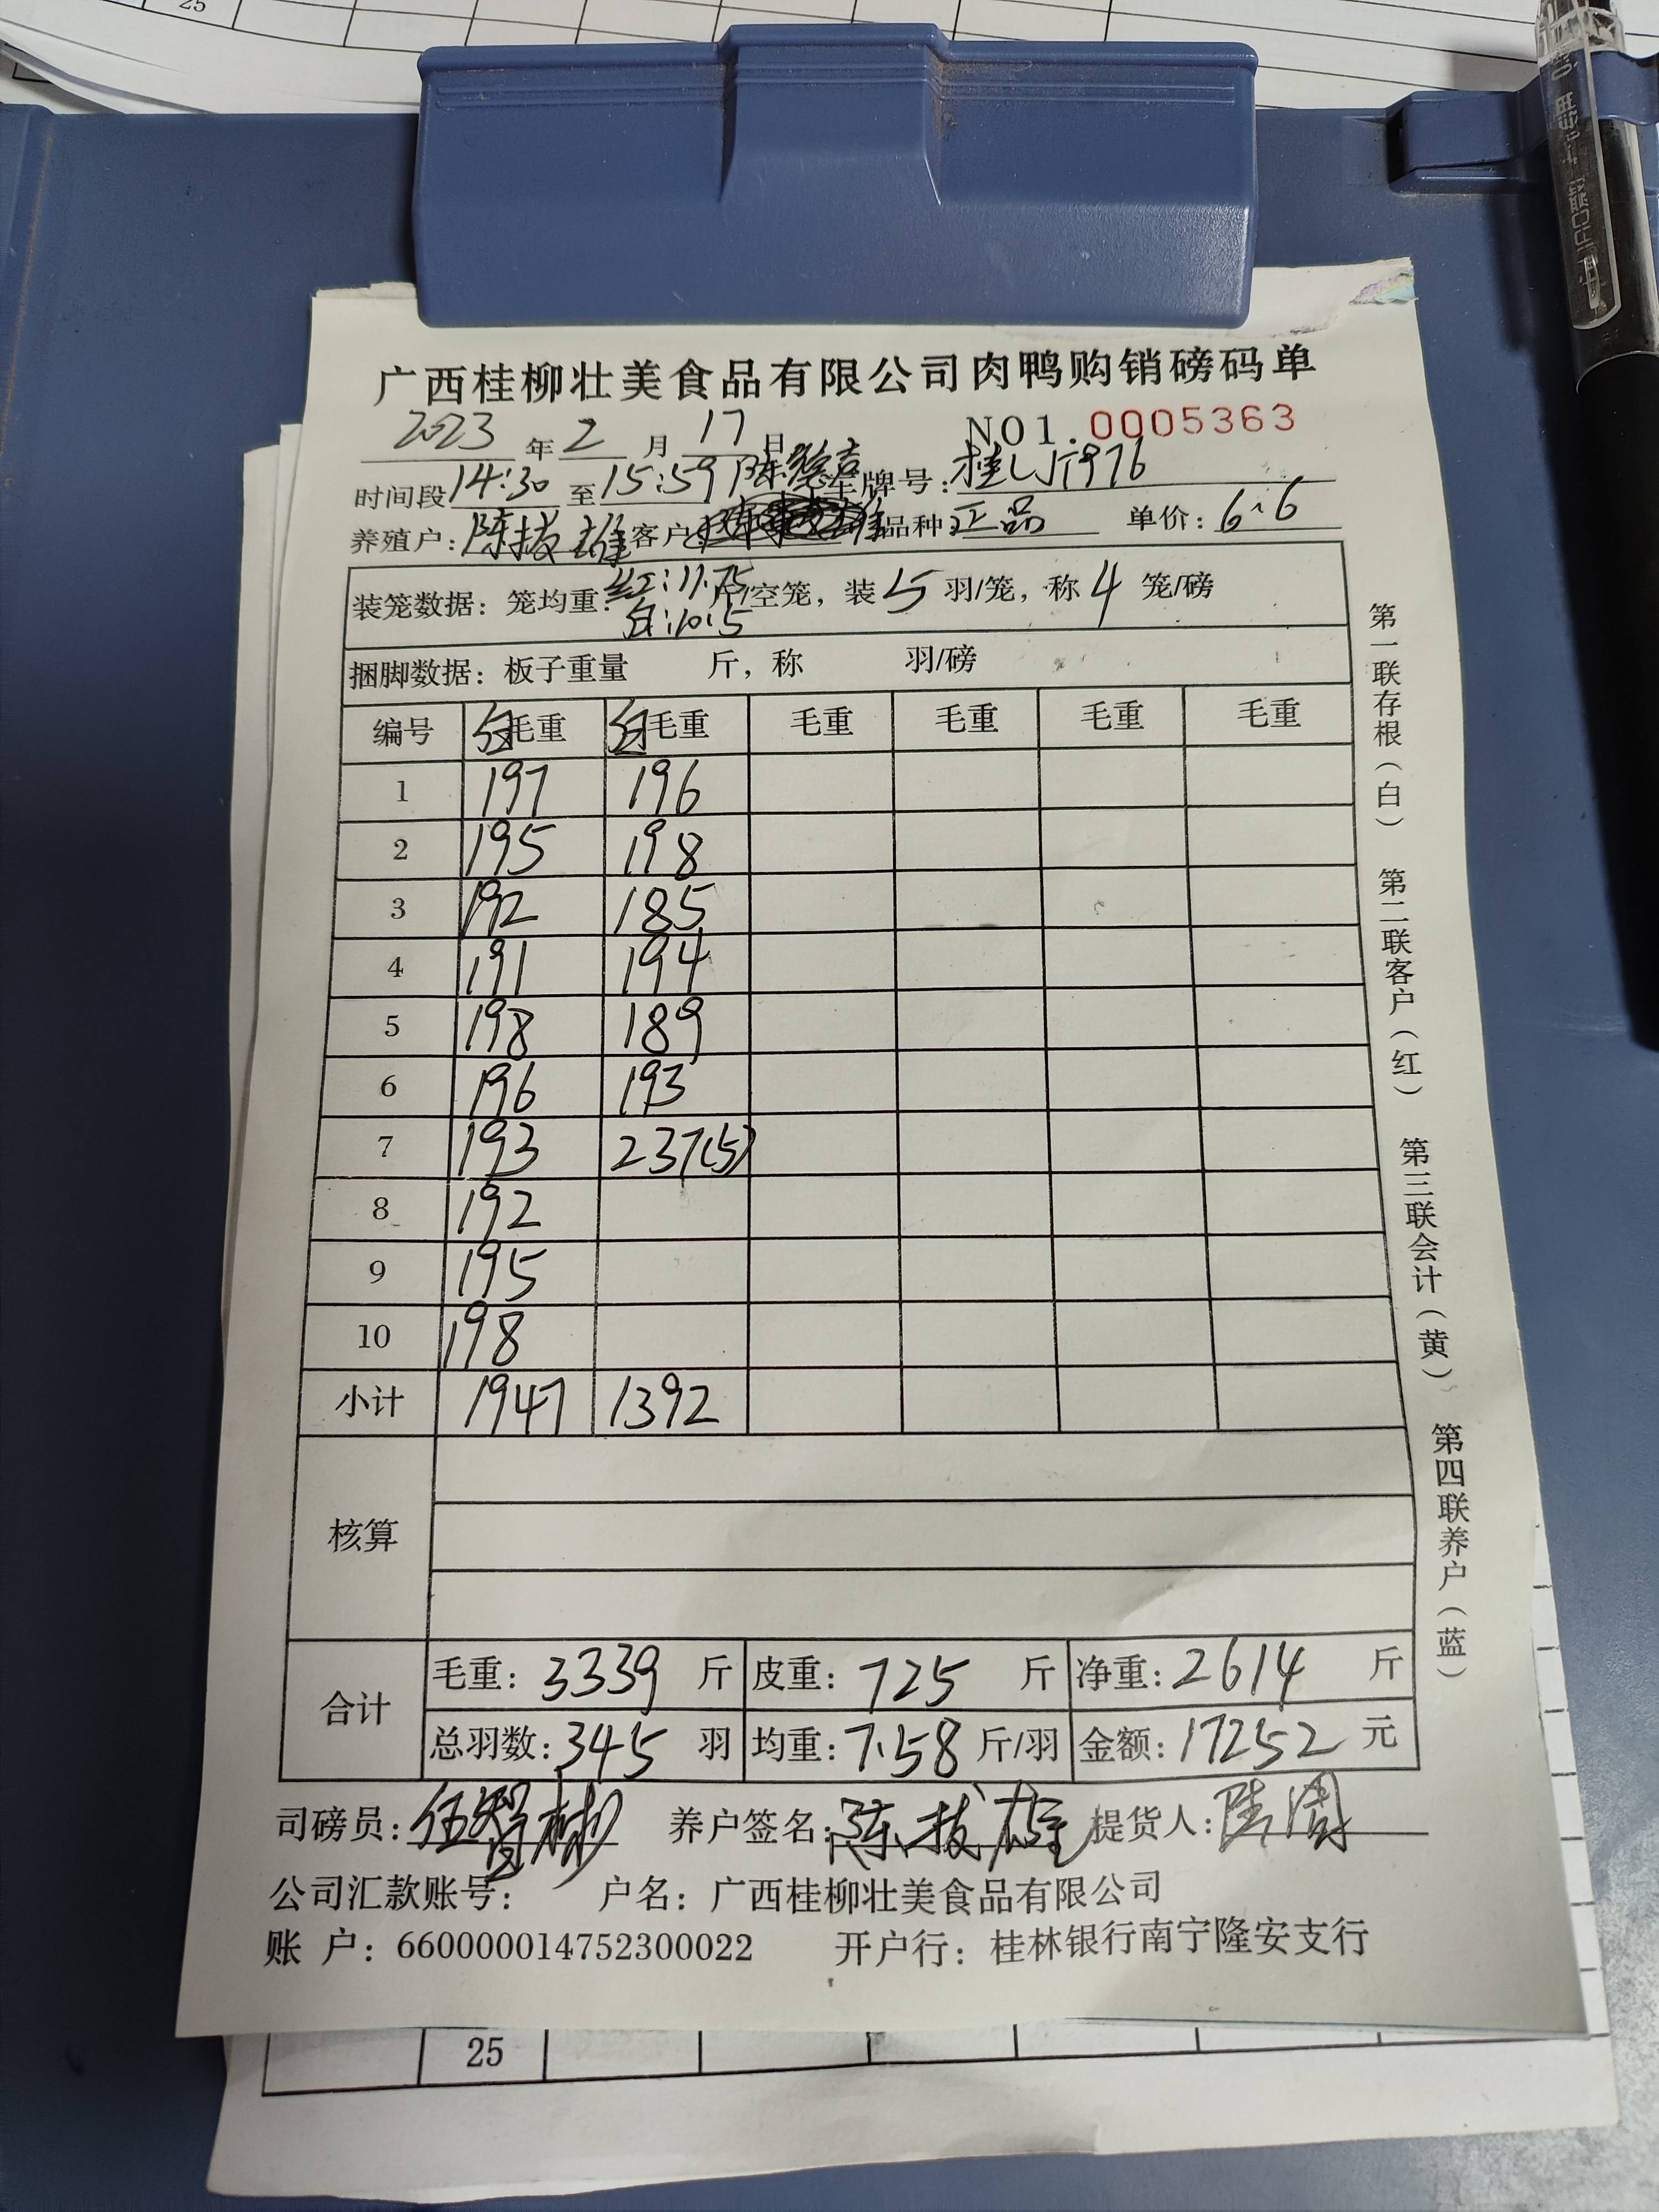 25
广西桂柳壮美食品有限公司肉鸭购销磅码单
2023 年 2 月 17 日 NO1.0005363
时间段 14:30 至 15:59 车牌号:
养殖户: 陈拔雄 客户 品种: 正品 单价: 6.6
装笼数据: 笼均重: 红:11.75 白:10.5 斤/空笼, 装 5 羽/笼, 称 4 笼/磅
捆脚数据: 板子重量 斤, 称 羽/磅
编号 白毛重 白毛重 毛重 毛重 毛重 毛重
1 197 196
2 195 198
3 192 185
4 191 194
5 198 189
6 196 193
7 193 237(5)
8 192
9 195
10 198
小计 1947 1392
核算
合计
毛重: 3339 斤 皮重: 725 斤 净重: 2614 斤
总羽数: 345 羽 均重: 7.58 斤/羽 金额: 17252 元
司磅员: 伍智彬 养户签名: 陈拔雄 提货人:
公司汇款账号: 户名: 广西桂柳壮美食品有限公司
账 户: 660000014752300022 开户行: 桂林银行南宁隆安支行
第一联存根(白) 第二联客户(红) 第三联会计(黄) 第四联养户(蓝)
25